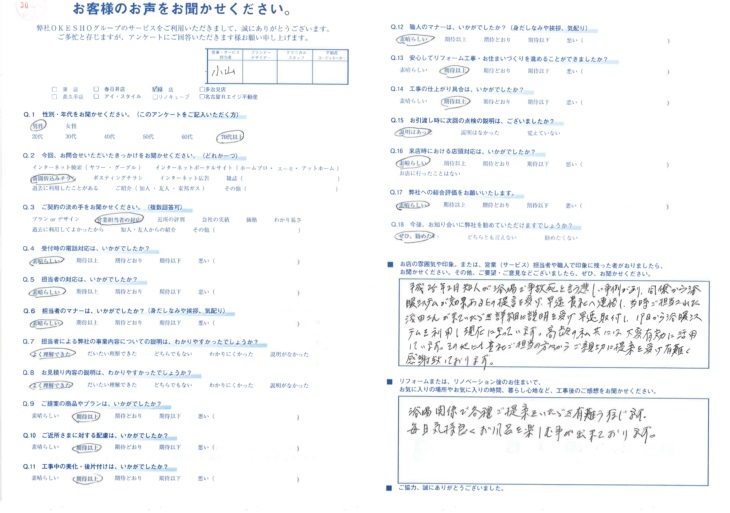 お客様のお声をお聞かせください。
弊社OKESHOグループのサービスをご利用いただきまして、誠にありがとうございます。
ご多忙と存じますが、アンケートにご回答いただきます様お願い申し上げます。
小山
春日井店
アイ・スタイル
リノキューブ
多治見店
名古屋Hエイジ不動産
Q.1 性別・年代をお聞かせください。(このアンケートをご記入いただく方)
男性 女性
20代 30代 40代 50代 60代 70代以上
Q.2 今回、お問合せいただいたきっかけをお聞かせください。(どれか一つ)
インターネット検索(ヤフー・グーグル) インターネットポータルサイト(ホームプロ・エ〜ネ・アットホーム)
新聞折込みチラシ ポスティングチラシ インターネット広告 雑誌( )
過去に利用したことがある ご紹介(知人・友人・東邦ガス) その他( )
Q.3 ご契約の決め手をお聞かせください。(複数回答可)
プラン or デザイン 営業担当者の対応 近所の評判 会社の実績 価格 わかり易さ
過去に利用してよかったから 知人・友人からの紹介 その他( )
Q.4 受付時の電話対応は、いかがでしたか?
素晴らしい 期待以上 期待どおり 期待以下 悪い( )
Q.5 担当者の対応は、いかがでしたか?
素晴らしい 期待以上 期待どおり 期待以下 悪い( )
Q.6 担当者のマナーは、いかがでしたか?(身だしなみや挨拶、気配り)
素晴らしい 期待以上 期待どおり 期待以下 悪い( )
Q.7 担当者による弊社の事業内容についての説明は、わかりやすかったでしょうか?
よく理解できた だいたい理解できた どちらでもない わかりにくかった 説明がなかった
Q.8 お見積り内容の説明は、わかりやすかったでしょうか?
よく理解できた だいたい理解できた どちらでもない わかりにくかった 説明がなかった
Q.9 ご提案の商品やプランは、いかがでしたか?
素晴らしい 期待以上 期待どおり 期待以下 悪い( )
Q.10 ご近所さまに対する配慮は、いかがでしたか?
素晴らしい 期待以上 期待どおり 期待以下 悪い( )
Q.11 工事中の美化・後片付けは、いかがでしたか?
素晴らしい 期待以上 期待どおり 期待以下 悪い( )
Q.12 職人のマナーは、いかがでしたか?(身だしなみや挨拶、気配り)
素晴らしい 期待以上 期待どおり 期待以下 悪い( )
Q.13 安心してリフォーム工事・お住まいづくりを進めることができましたか?
素晴らしい 期待以上 期待どおり 期待以下 悪い( )
Q.14 工事の仕上がり具合は、いかがでしたか?
素晴らしい 期待以上 期待どおり 期待以下 悪い( )
Q.15 お引渡し時に次回の点検の説明は、ございましたか?
説明はあった 説明はなかった 覚えていない
Q.16 来店時における店頭対応は、いかがでしたか?
素晴らしい 期待以上 期待どおり 期待以下 悪い( )
お店に行ったことはない
Q.17 弊社への総合評価をお願いいたします。
素晴らしい 期待以上 期待どおり 期待以下 悪い( )
Q.18 今後、お知り合いに弊社を勧めていただけますでしょうか?
ぜひ、勧めたい どちらとも言えない 勧めたくない
■ お店の雰囲気や印象。または、営業(サービス)担当者や職人で印象に残った者がおりましたら、
お聞かせください。その他、ご要望・ご意見などございましたら、ぜひ、お聞かせください。
感謝致しております。
■ リフォームまたは、リノベーション後のお住まいで、
お気に入りの場所やお気に入りの時間、暮らし心地など、工事後のご感想をお聞かせください。
浴場関係で各種ご提案をいただき有難う存じます。
毎日気持良くお風呂を楽しむ事が出来ております。
■ ご協力、誠にありがとうございました。